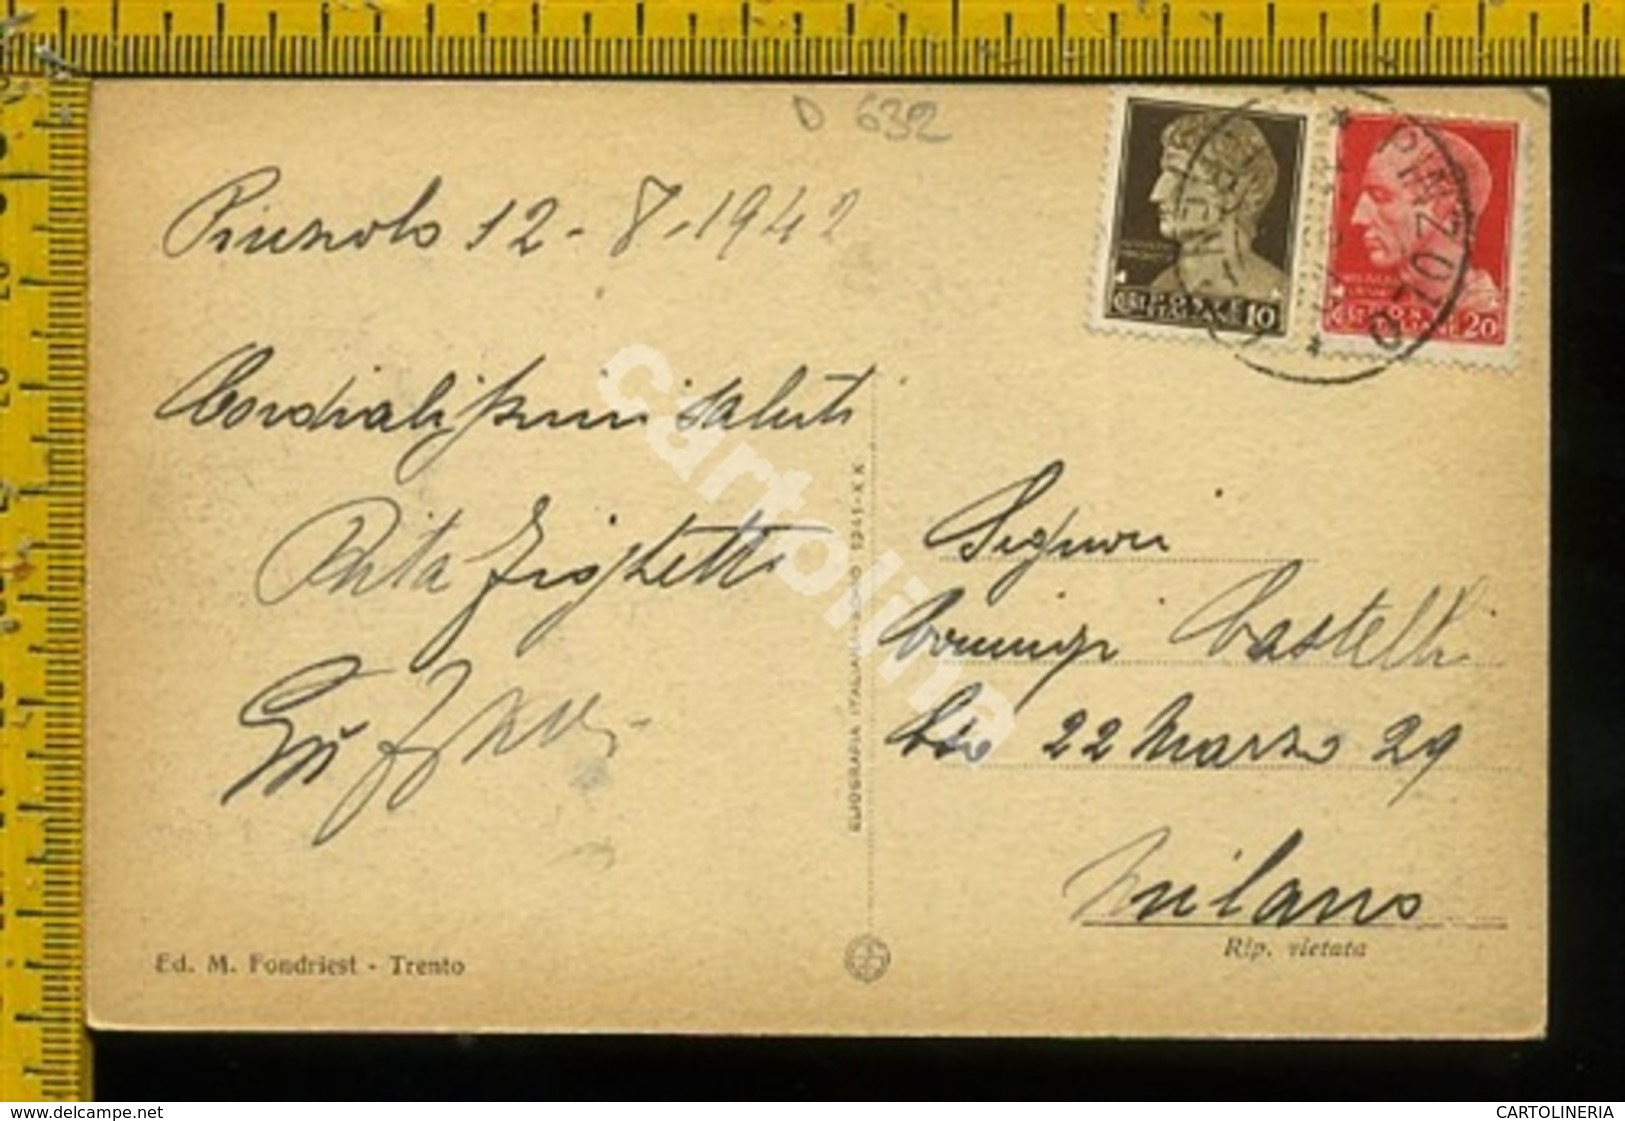 D 632
Pinzolo 12-8-1942
Cordialissimi saluti
Rita Zighetti
POSTE ITALIANE
CEST 10
POSTE ITALIANE
CEST 20
PINZOLO
Signori
Castelli
22 Marzo 29
Milano
ELIOGRAFIA ITALIA 1941-XX
Ed. M. Fondriest - Trento
Rip. vietata
cartolina
www.delcampe.net
CARTOLINERIA